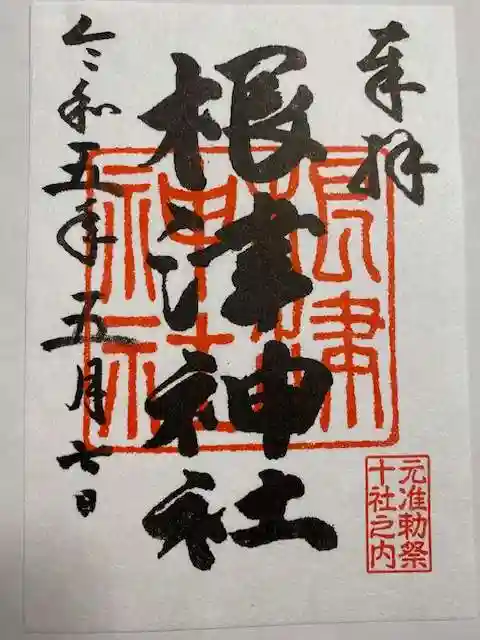 奉拝
根津神社
根津
神社
令和五年五月七日
元准勅祭
十社之内